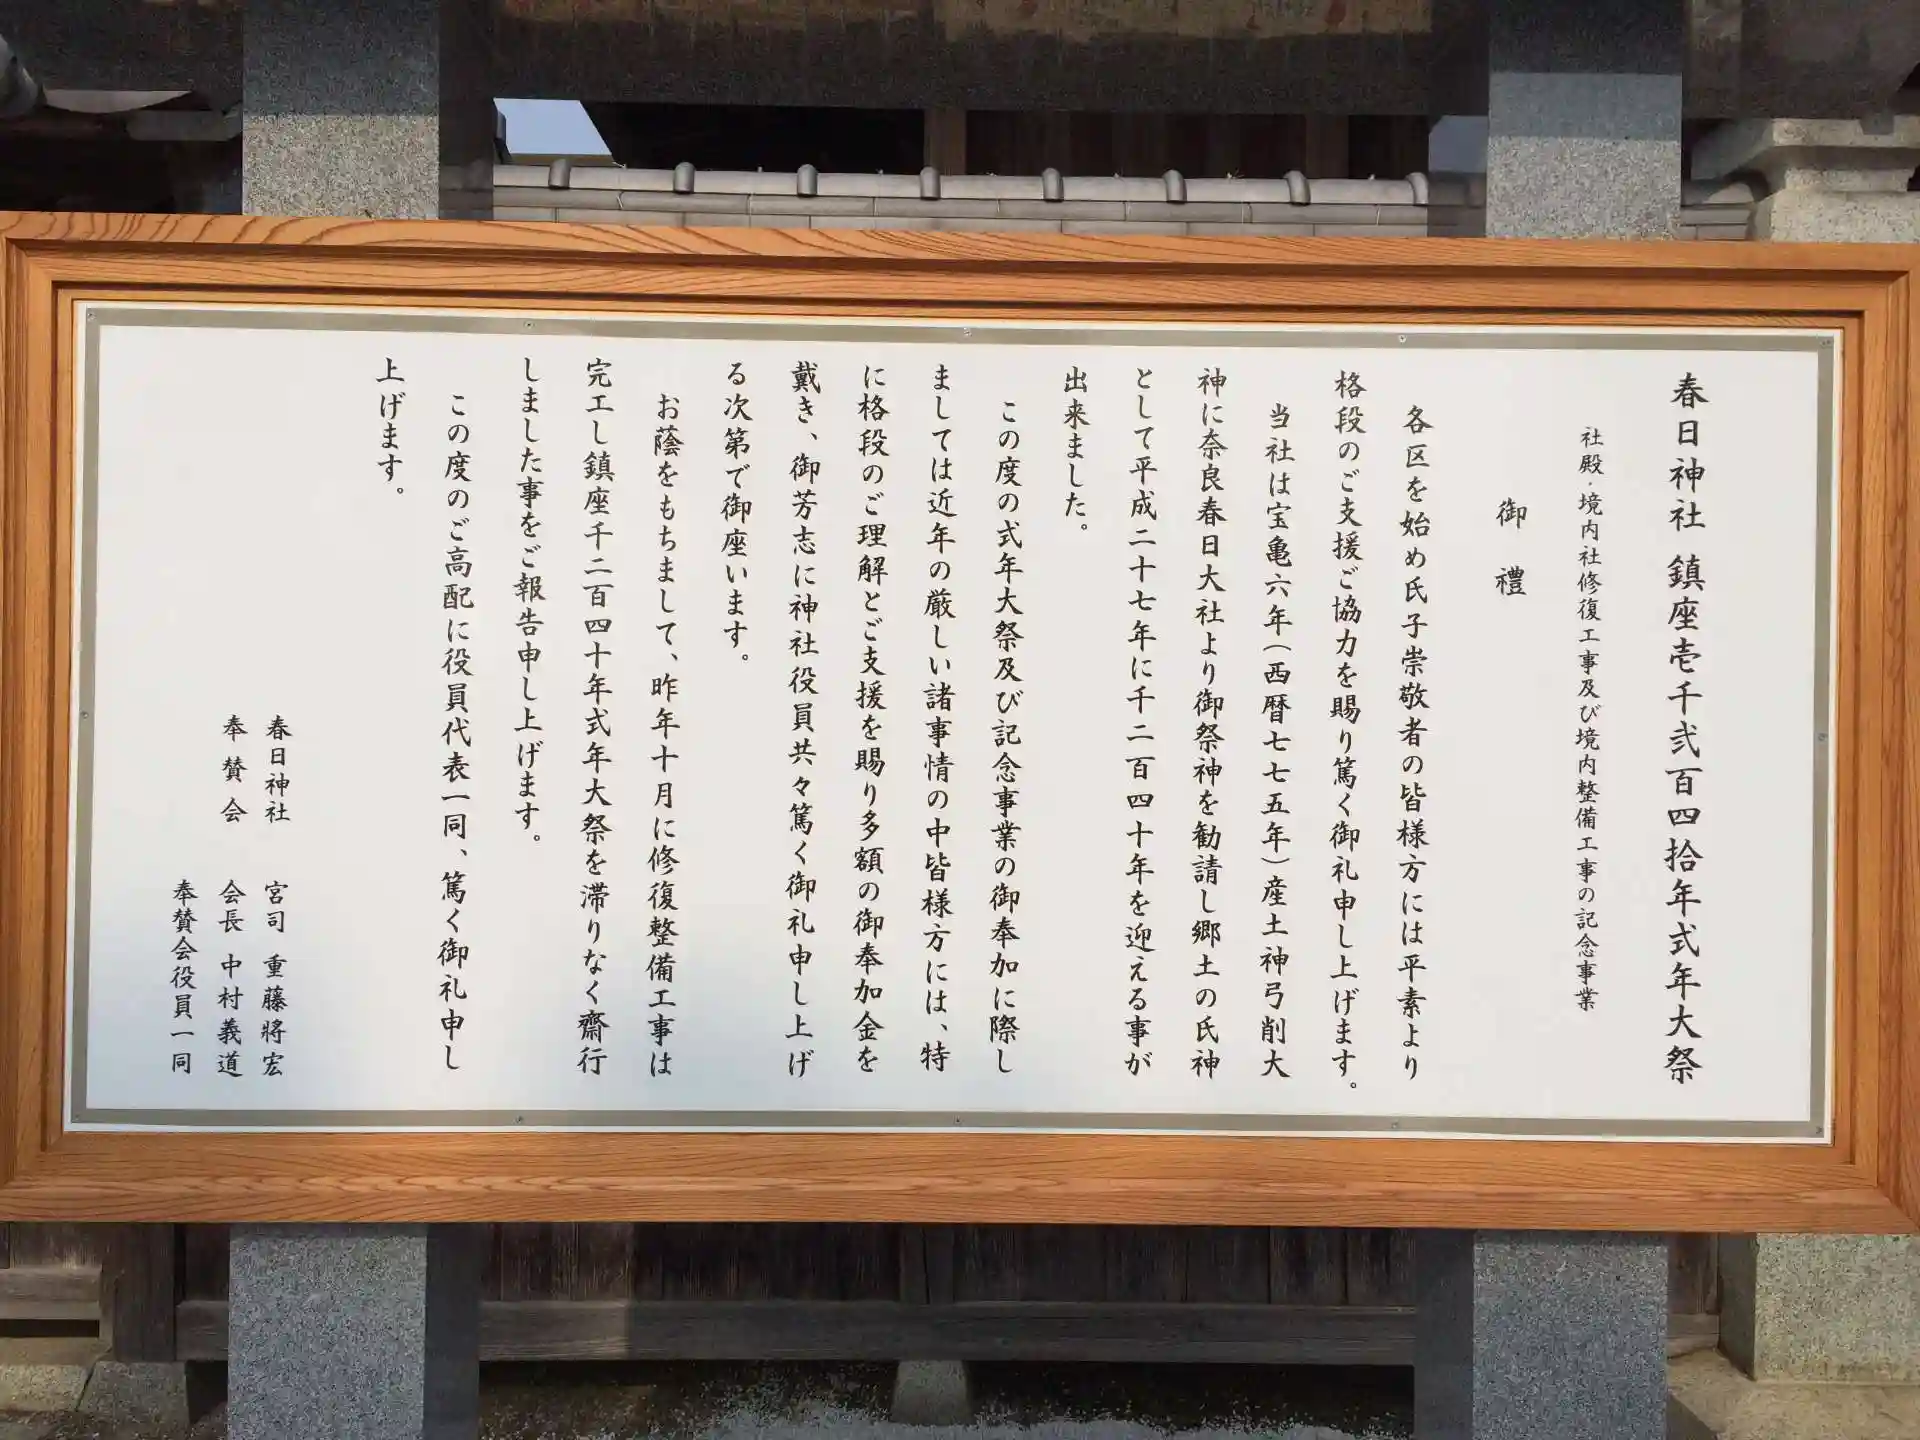 春日神社 鎮座壱千弐百四拾年式年大祭
社殿・境内社修復工事及び境内整備工事の記念事業
御禮
各区を始め氏子崇敬者の皆様方には平素より
格段のご支援ご協力を賜り篤く御礼申し上げます。
当社は宝亀六年(西暦七七五年)産土神弓削大
神に奈良春日大社より御祭神を勧請し郷土の氏神
として平成二十七年に千二百四十年を迎える事が
出来ました。
この度の式年大祭及び記念事業の御奉加に際し
ましては近年の厳しい諸事情の中皆様方には、特
に格段のご理解とご支援を賜り多額の御奉加金を
戴き、御芳志に神社役員共々篤く御礼申し上げ
る次第で御座います。
お蔭をもちまして、昨年十月に修復整備工事は
完工し鎮座千二百四十年式年大祭を滞りなく齋行
しました事をご報告申し上げます。
この度のご高配に役員代表一同、篤く御礼申し
上げます。
春日神社 宮司 重藤將宏
奉賛会 会長 中村義道
奉賛会役員一同